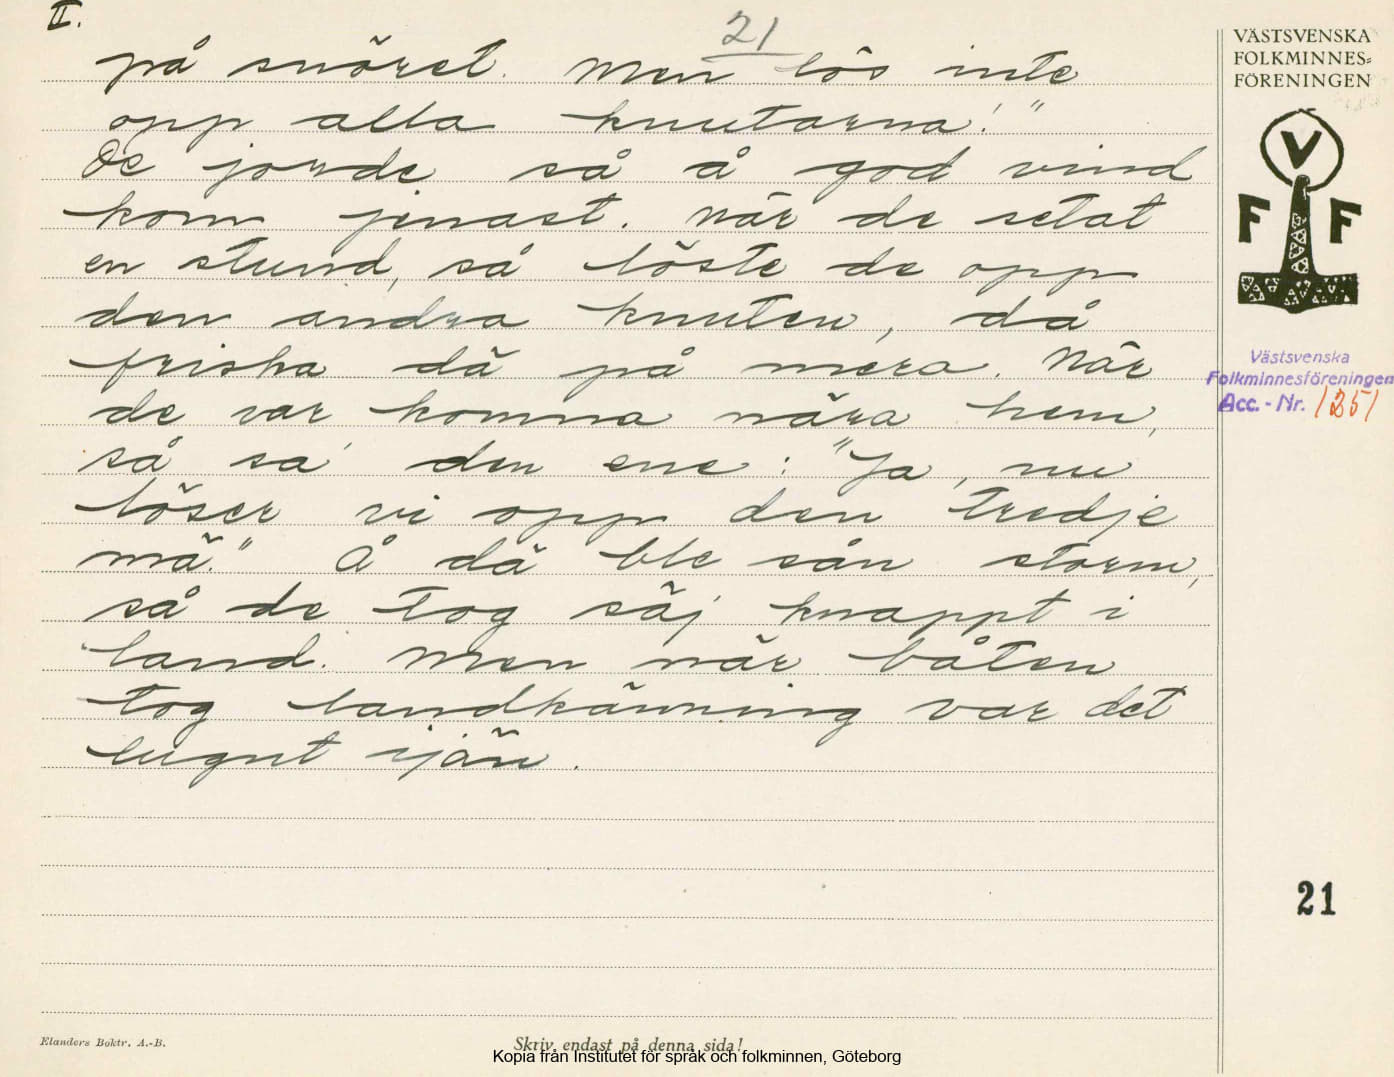 II.
21
på snöret. Men lös inte
opp alla knutarna!"
De jorde så å god vind
kom jenast. När de setat
en stund, så löste de opp
den andra knuten, då
friska dä på mera. När
de var komna nära hem,
så sa' den ene: "Ja, nu
löser vi opp den tredje
mä." Å dä ble sån storm,
så de tog säj knappt i
land. Men när båten
tog landkänning var det
lugnt ijän.
VÄSTSVENSKA
FOLKMINNES=
FÖRENINGEN
V
F F
Västsvenska
Folkminnesföreningen
Acc. - Nr. 1351
21
Elanders Boktr. A.-B.
Skriv endast på denna sida!
Kopia från Institutet för språk och folkminnen, Göteborg